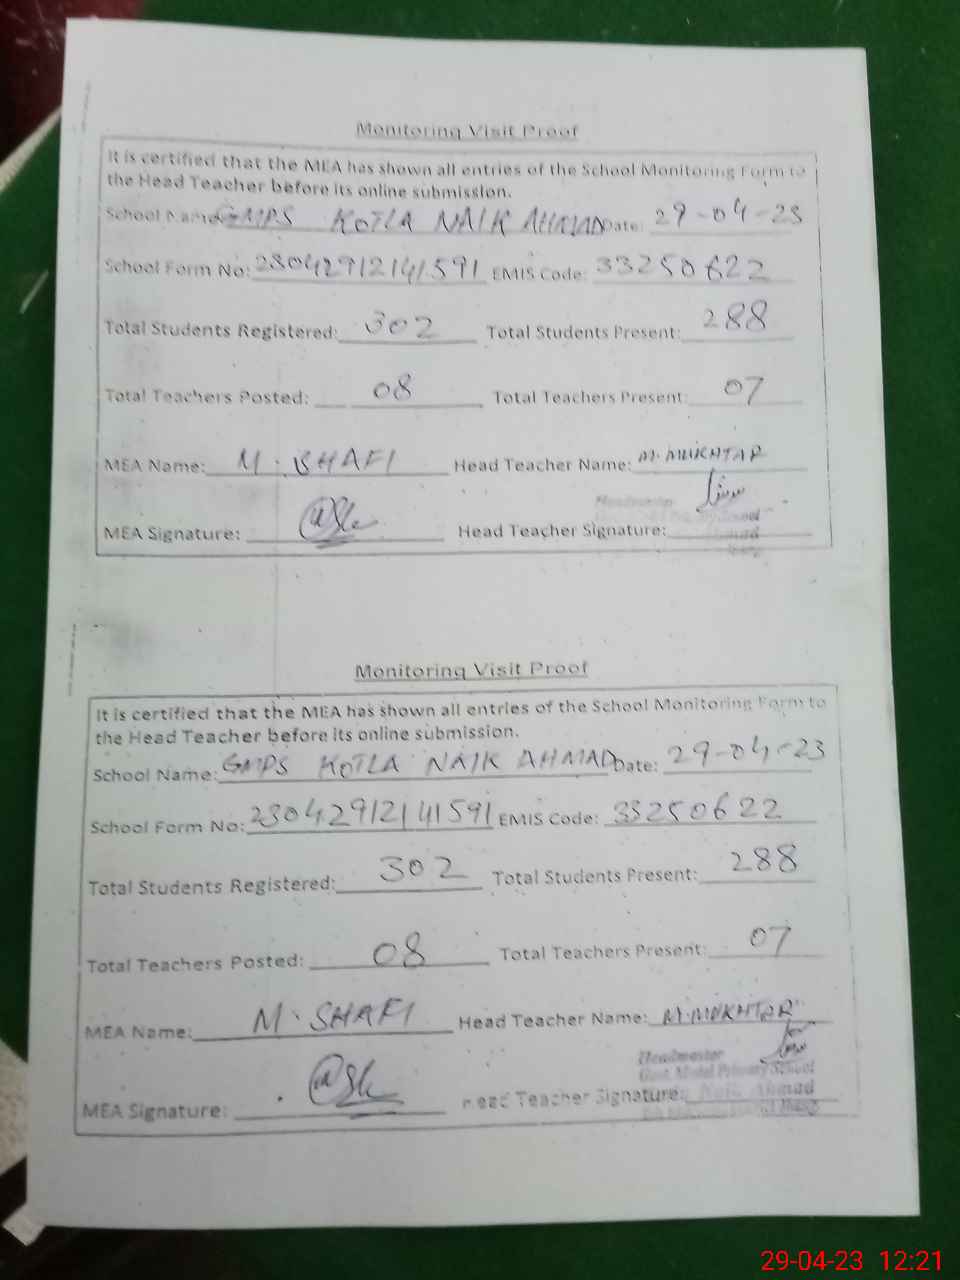 Monitoring Visit Proof
It is certified that the MEA has shown all entries of the School Monitoring Form to
the Head Teacher before its online submission.
School Name: GMPS KOTLA NAIK AHMAD Date: 29-04-23
School Form No: 23042912141591 EMIS Code: 33250622
Total Students Registered: 302 Total Students Present: 288
Total Teachers Posted: 08 Total Teachers Present: 07
MEA Name: M. SHAFI Head Teacher Name: M. MUKHTAR
Headmaster
MEA Signature: Head Teacher Signature:
Monitoring Visit Proof
It is certified that the MEA has shown all entries of the School Monitoring Form to
the Head Teacher before its online submission.
School Name: GMPS KOTLA NAIK AHMAD Date: 29-04-23
School Form No: 23042912141591 EMIS Code: 33250622
Total Students Registered: 302 Total Students Present: 288
Total Teachers Posted: 08 Total Teachers Present: 07
MEA Name: M. SHAFI Head Teacher Name: M. MUKHTAR
Headmaster
Govt. Model Primary School
MEA Signature: Head Teacher Signature: Naik Ahmad
29-04-23 12:21